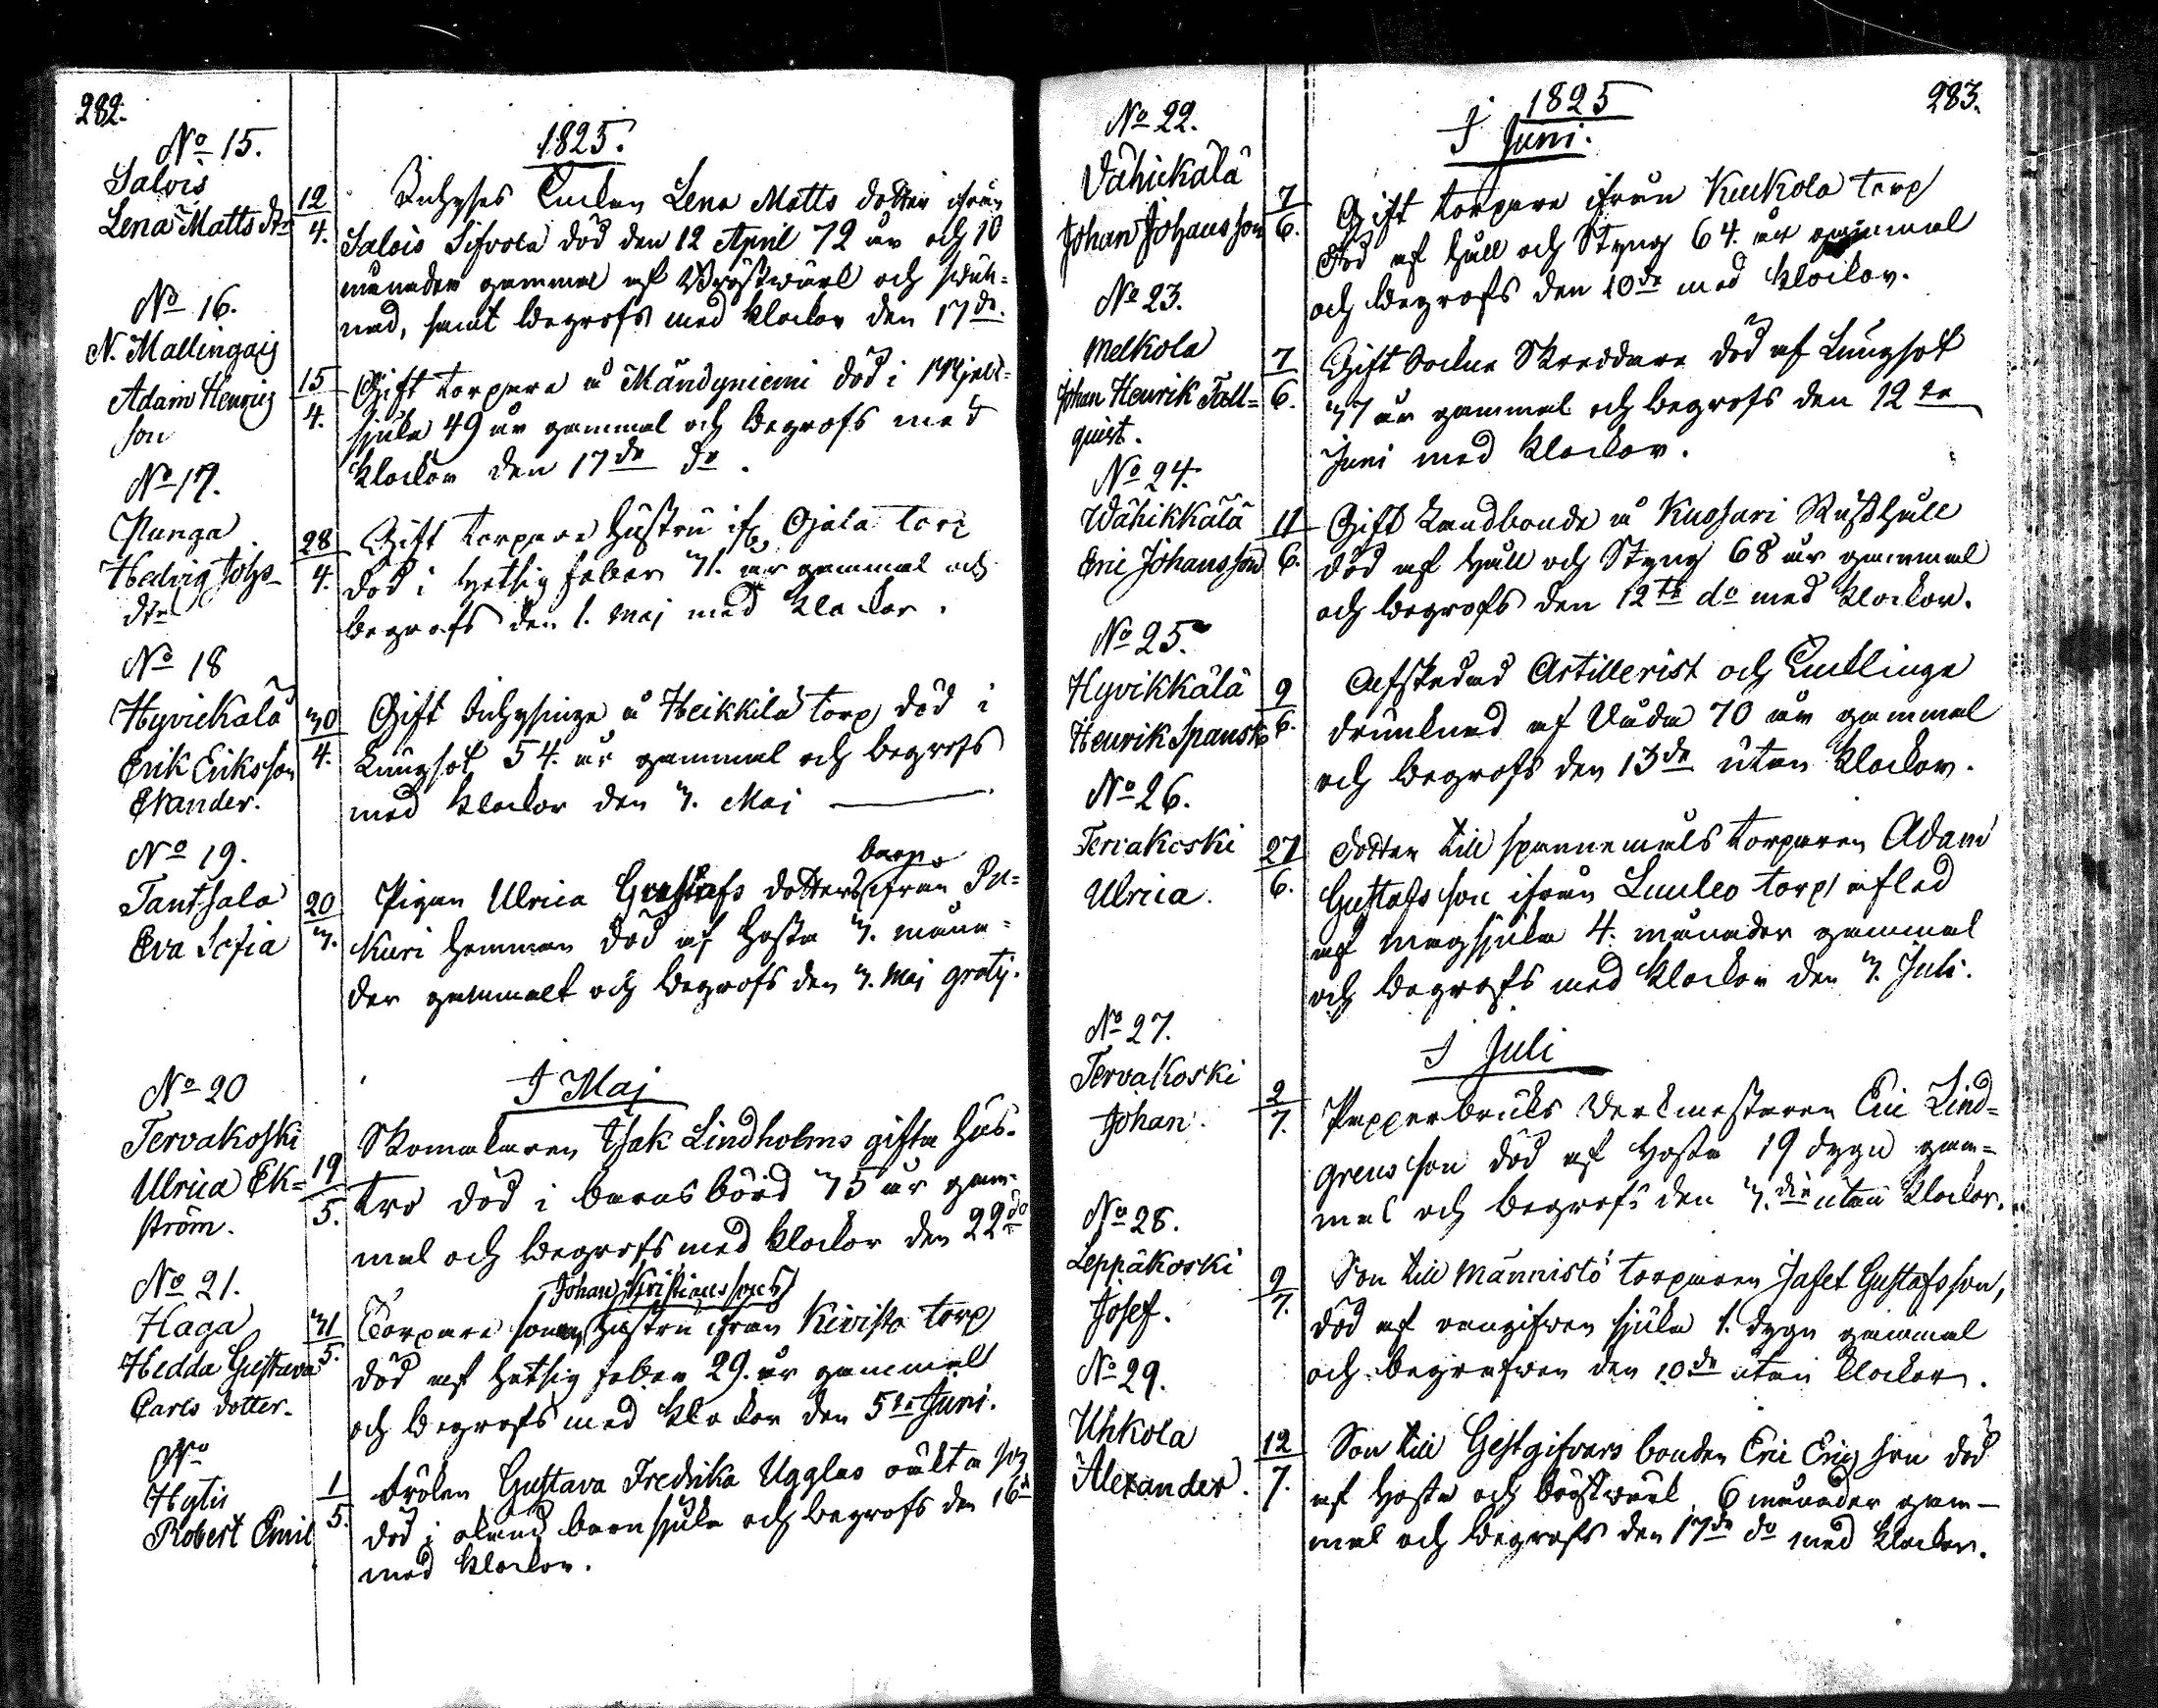 282.
1825.
No 15.
Salois
Lena Matts dr
12/4.
Inhyses Enkan Lena Matts dotter ifrån
Salois Sifvola död den 12 April 72 år och 10
månader gammal af Bröstwärk och
nad, samt begrofs med klockor den 17de.
No 16.
N. Mallingaij
Adam Henrics
son
15/4.
Gift torpare å Mändyniemi död i Mjelt=
sjuka 49 år gammal och begrofs med
klockor den 17de do.
No 17.
Nunga
Hedvig Johs
dtr
28/4.
Gift torpare hustru ifr. Ojala torp
död i hetsig feber 31. år gammal och
begrofs den 1. Maj med klockor.
No 18
Hyvickälä
Erik Eriksson
Evander.
30/4.
Gift Inhysinge å Heikkilä torp död i
Lungsot 54. år gammal och begrofs
med klockor den 3. Maj
No 19.
Tantsala
Eva Sofia
20/3.
Pigan Ulrica Gustafs dotters barn ifrån Pu=
kuri hemman död af hosta 3. måna=
der gammalt och begrofs den 3. Maj gratis.
I Maj
No 20
Tervakoski
Ulrica Ek=
ström.
19/5.
Skomakaren Isak Lindholms gifta hus=
tro död i barnsbörd 35 år gam=
mal och begrofs med klockor den 22do
No 21.
Haga
Hedda Gustava
Carls dotter.
31/5.
Torpare sonens Johan Kristianssons hustru ifrån Kivistö torp
död af hetsig feber 29. år gammalt
och begrofs med klockor den 5te Juni.
No
Hytis
Robert Emil
1/5.
Frölen Gustava Fredrika Ugglas oäkta son
död i okänd barnsjuka och begrofs den 16de
med klockor.
283.
1825
I Juni.
No 22.
Vähickälä
Johan Johansson
7/6.
Gift torpare ifrån Kuckola torp
död af håll och Styng 64. år gammal
och begrofs den 10de med klockor.
No 23.
Melkola
Johan Henrik Fall=
quist.
7/6.
Gift Sockne Skreddare död af Lungsot
37 år gammal och begrofs den 12te
Juni med klockor.
No 24.
Wähikkälä
Eric Johansson
11/6.
Gift Landbonde å Knosari Rusthåll
död af håll och Styng 68 år gammal
och begrofs den 12te do med klockor.
No 25.
Hyvikkälä
Henrik Spansk
9/6.
Afskedad Artillerist och Enklinge
drunknad af Våda 70 år gammal
och begrofs den 13de utan klockor.
No 26.
Tervakoski
Ulrica.
27/6.
Dotter till spannemåls torparen Adam
Gustafsson ifrån Luuleo torp afled
af magsjuka 4. månader gammal
och begrofs med klockor den 3. Juli.
I Juli
No 27.
Tervakoski
Johan.
2/7.
Pappersbruks Verkmästaren Eric Lind=
grens son död af hosta 19 dygn gam=
mal och begrofs den 3. die utan klockor.
No 28.
Leppäkoski
Josef.
9/7.
Son till Männistö torparen Jafet Gustafsson,
död af oangifven sjuka 1. dygn gammal
och begrafven den 10de utan klockor.
No 29.
Uhkola
Alexander.
12/7.
Son till Gestgifvars bonden Eric Ericsson död
af hosta och bröstwärk 6 månader gam=
mal och begrofs den 17de do med klockor.